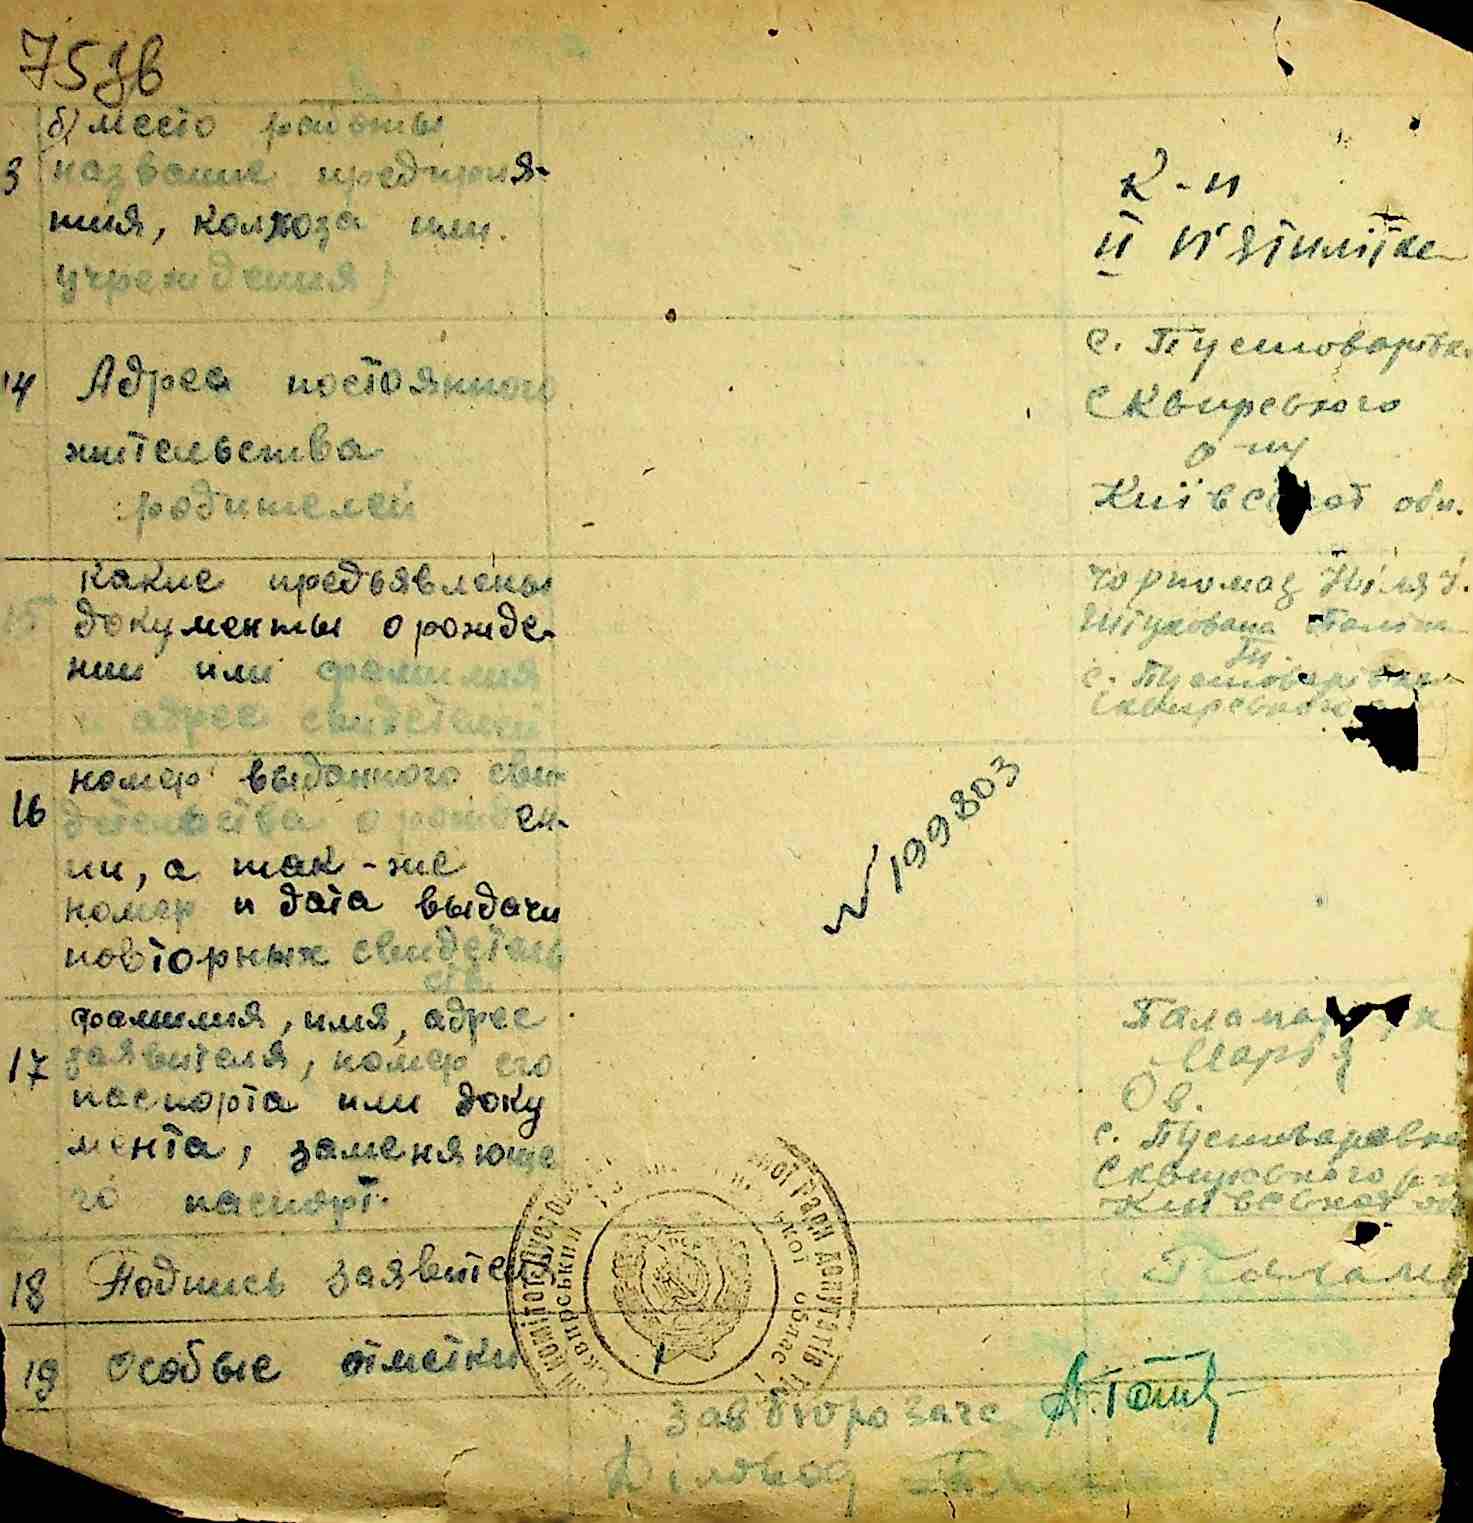 75зв
б) место работы
3 название предприя-
тия, колхоза или
учреждения)
к-п
II п'ятилітке
14 Адрес постоянного
жительства
родителей
с. Пустоварівка
Сквирского
р-ну
Київської обл.
15 какие предъявлены
документы о рожде-
нии или фамилия
и адрес свидетелей
Чорномаз
с. Пустоварівка
Сквирського
16 номер выданного сви-
детельства о рожден-
ии, а так-же
номер и дата выдачи
повторных свидетель
ств
N 199803
17 фамилия, имя, адрес
заявителя, номер его
паспорта или доку
мента, заменяюще
го паспорт.
Марія
с. Пустоваровка
Сквирского р-н
18 Подпись заявителя
Палама
19 Особые отметки
завбюро загс
Діловод